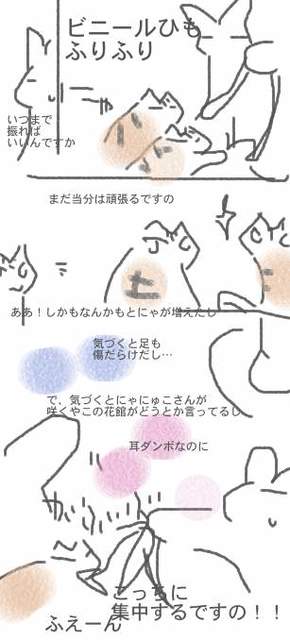 ビニールひも
ふりふり
いつまで
振れば
いいんですか
まだ当分は頑張るですの
ああ！しかもなんかもとにゃが増えたし
気づくと足も
傷だらけだし…
で、気づくとにゃにゅこさんが
咲くやこの花館がどうとか言ってるし
耳ダンボなのに
こっちに
集中するですの！！
ふえーん